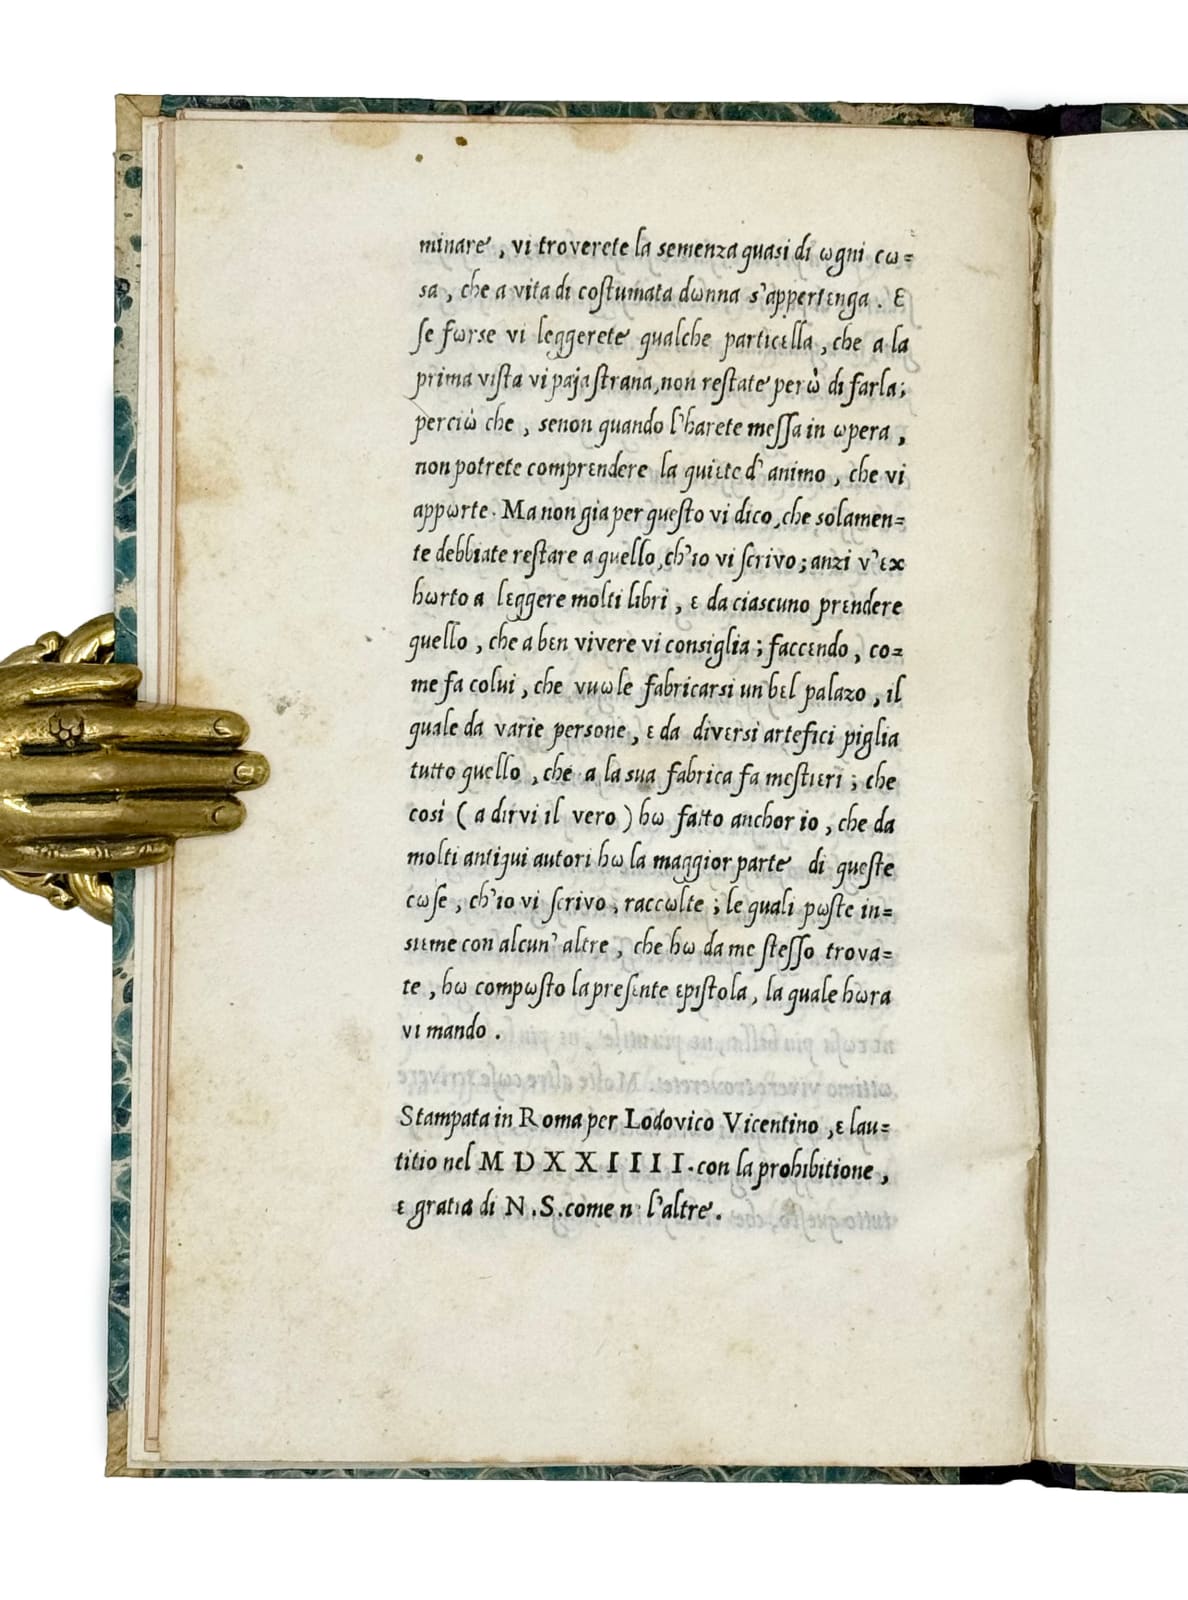 minare, vi troverete la semenza quasi di ωgni cω=
sa, che a vita di coſtumata dωnna s'appertεnga. ε
ſe fωrse vi leggerete qualche particεlla, che a la
prima viſta vi paja ſtrana, non reſtate perὼ di farla;
perciὼ che, senon quando l'harete meſſa in ωpera,
non potrete comprεndere la quiεte d' animo, che vi
appωrte. Ma non gia per queſto vi dico, che solamen=
te debbiate reſtare a quello, ch'io vi ſcrivo; anzi v'εx
hωrto a lεggere molti libri, ε da ciascuno prεndere
quello, che a bεn vivere vi consiglia; faccεndo, co=
me fa colui, che vuωle fabricarsi un bεl palazo, il
quale da varie persone, ε da divεrsi artefici piglia
tutto quello, che a la sua fabrica fa meſtiεri; che
così (a dirvi il vero) hω fatto anchor io, che da
molti antiqui autori hω la maggior parte di queſte
cωſe, ch'io vi ſcrivo, raccωlte; le quali pωſte in=
siεme con alcun' altre, che hω da me ſteſſo trova=
te, hω compωſto la preſεnte εpiſtola, la quale hωra
vi mando.
Stampata in Roma per Lodovico Vicentino, ε lau=
titio nel M D X X I I I I. con la prohibitione,
ε gratia di N. S. come n l'altre.